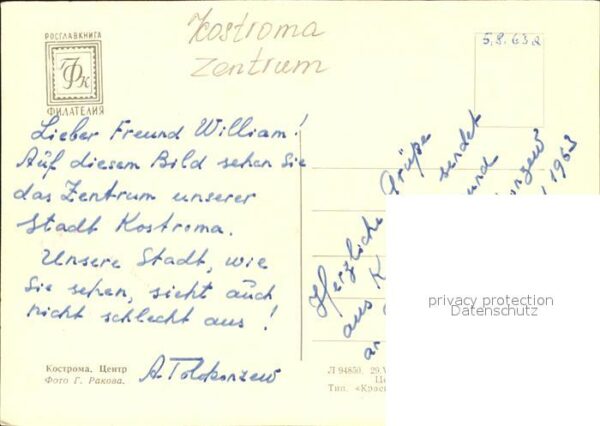 Kostroma
Zentrum
РОСГЛАВКНИГА
ФК
ФИЛАТЕЛИЯ
5.8.63
Lieber Freund William!
Auf diesem Bild sehen Sie
das Zentrum unserer
Stadt Kostroma.
Unsere Stadt, wie
Sie sehen, sieht auch
nicht schlecht aus!
A. Tolokonzew
Кострома. Центр
Фото Г. Ракова.
Herzliche Grüße
aus K sendet
an und
onzew
1963
privacy protection
Datenschutz
Л 94850. 29.V
Це
Тип. «Крас